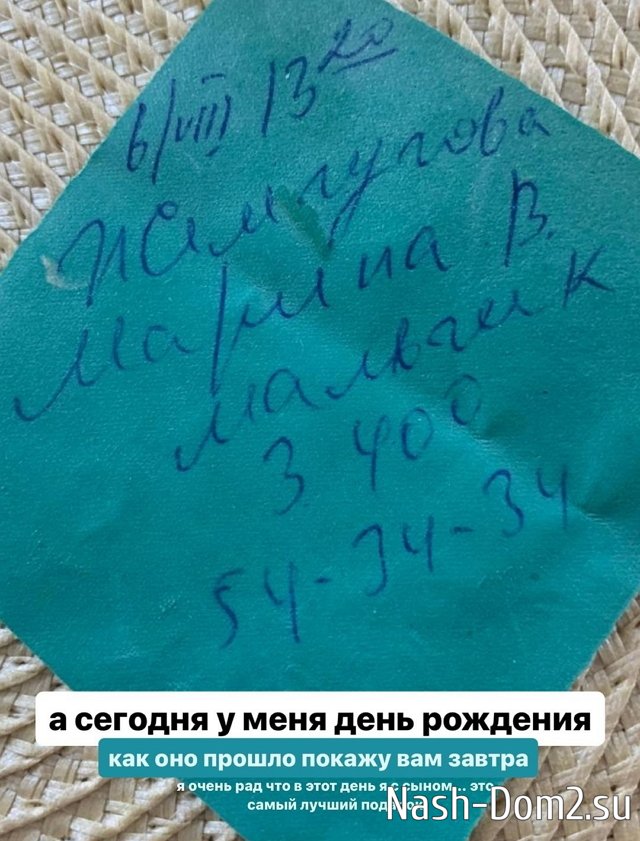 6/VIII 13²⁰
Жемчугова
Марина В.
мальчик
3 400
54-34-34
а сегодня у меня день рождения
как оно прошло покажу вам завтра
я очень рад что в этот день я с сыном... это
самый лучший подарок
Nash-Dom2.su